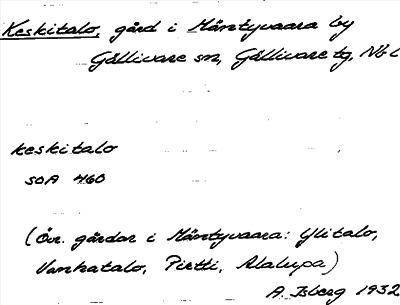 Keskitalo, gård i Mäntyvaara by
Gällivare sn, Gällivare tg, Nbl
keskitalo
SOA 460
(Övr. gårdar i Mäntyvaara: Ylitalo,
Vanhatalo, Pietti, Alalupa)
A. Isberg 1932